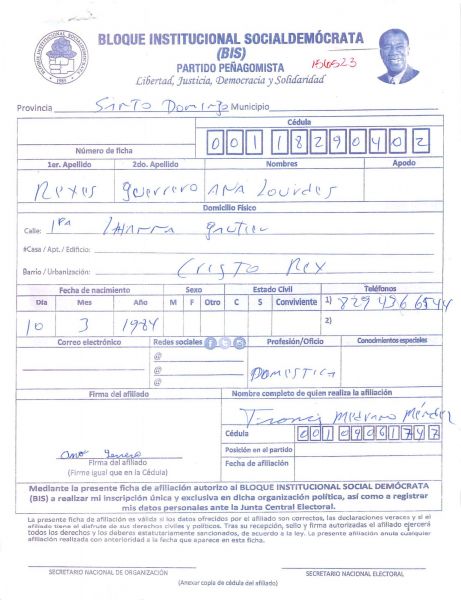 BLOQUE INSTITUCIONAL SOCIALDEMÓCRATA
(BIS)
PARTIDO PEÑAGOMISTA
156523
Libertad, Justicia, Democracia y Solidaridad
Provincia Santo Domingo Municipio
Cédula
Número de ficha 00118290402
1er. Apellido 2do. Apellido Nombres Apodo
Reyes Guerrero Ana Lourdes
Domicilio Físico
Calle: 1ra
#Casa / Apt. / Edificio:
Barrio / Urbanización: Cristo Rey
Fecha de nacimiento Sexo Estado Civil Teléfonos
Día Mes Año M F Otro C S Conviviente 1) 829 496 6544
10 3 1984 2)
Correo electrónico Redes sociales Profesión/Oficio Conocimientos especiales
@
@ DOMESTICA
@
Firma del afiliado Nombre completo de quien realiza la afiliación
Medrano Méndez
Cédula 00109061747
Posición en el partido
Ana
Firma del afiliado
(Firme igual que en la Cédula)
Fecha de afiliación
Mediante la presente ficha de afiliación autorizo al BLOQUE INSTITUCIONAL SOCIAL DEMÓCRATA
(BIS) a realizar mi inscripción única y exclusiva en dicha organización política, así como a registrar
mis datos personales ante la Junta Central Electoral.
La presente ficha de afiliación es válida si los datos ofrecidos por el afiliado son correctos, las declaraciones veraces y si el
afiliado tiene el disfrute de sus derechos civiles y políticos. Tras su recepción, sello y firma autorizadas el afiliado ejercerá
todos los derechos y los deberes estatutariamente sancionados, de acuerdo a la ley. La presente afiliación anula cualquier
afiliación realizada con anterioridad a la fecha que aparece en esta ficha.
SECRETARIO NACIONAL DE ORGANIZACIÓN SECRETARIO NACIONAL ELECTORAL
(Anexar copia de cédula del afiliado)